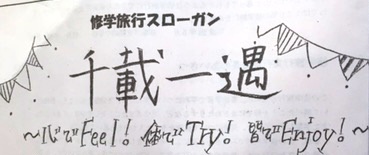 修学旅行スローガン
千載一遇
～心でFeel! 体でTry! 皆でEnjoy!～